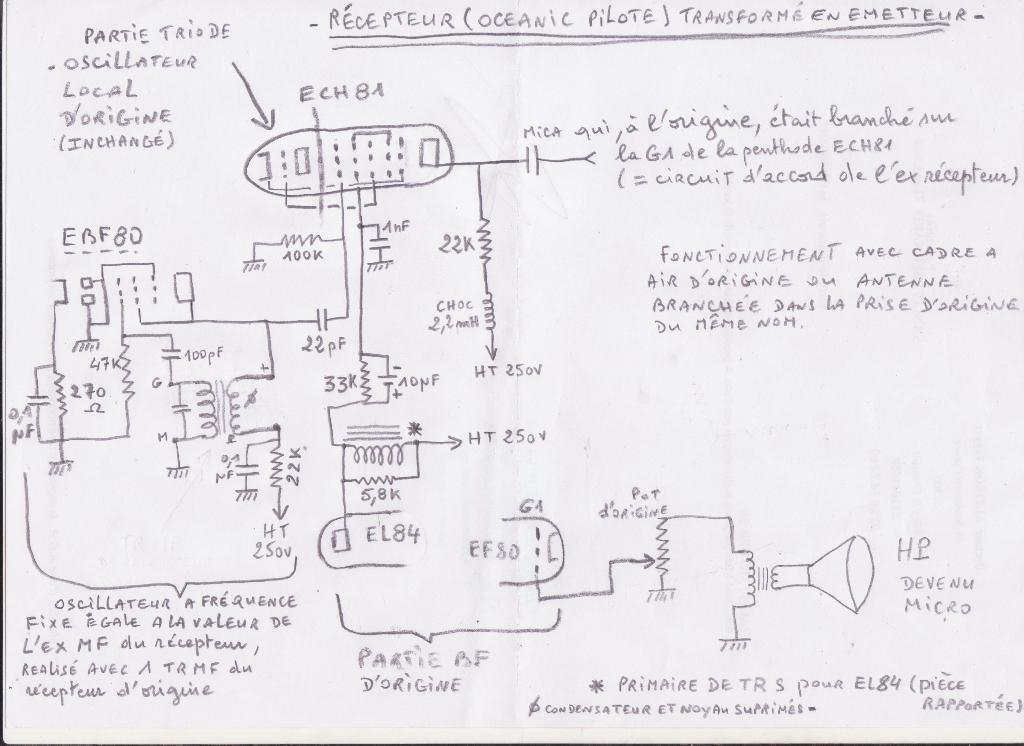 - RÉCEPTEUR (OCEANIC PILOTE) TRANSFORMÉ EN EMETTEUR -
PARTIE TRIODE
- OSCILLATEUR
LOCAL
D'ORIGINE
(INCHANGÉ)
ECH81
MICA
qui, à l'origine, était branché sur
la G1 de la penthode ECH81
(= CIRCUIT d'accord de l'ex récepteur)
FONCTIONNEMENT AVEC CADRE A
AIR D'ORIGINE OU ANTENNE
BRANCHÉE DANS LA PRISE D'ORIGINE
DU MÊME NOM.
EBF80
100K
1nF
22K
CHOC
2,2mH
HT 250V
22pF
47K
100pF
G
M
+
P
ø
270
Ω
0,1
µF
0,1
µF
22K
HT
250V
33K
-
10µF
+
*
HT 250V
5,8K
EL84
G1
EF80
POT
d'ORIGINE
HP
DEVENU
MICRO
OSCILLATEUR A FRÉQUENCE
FIXE ÉGALE A LA VALEUR DE
L'EX MF du récepteur,
REALISÉ AVEC 1 TR MF du
récepteur d'origine
PARTIE BF
D'ORIGINE
* PRIMAIRE DE TR S pour EL84 (PIÈCE
RAPPORTÉE)
ø CONDENSATEUR ET NOYAU SUPRIMÉS -